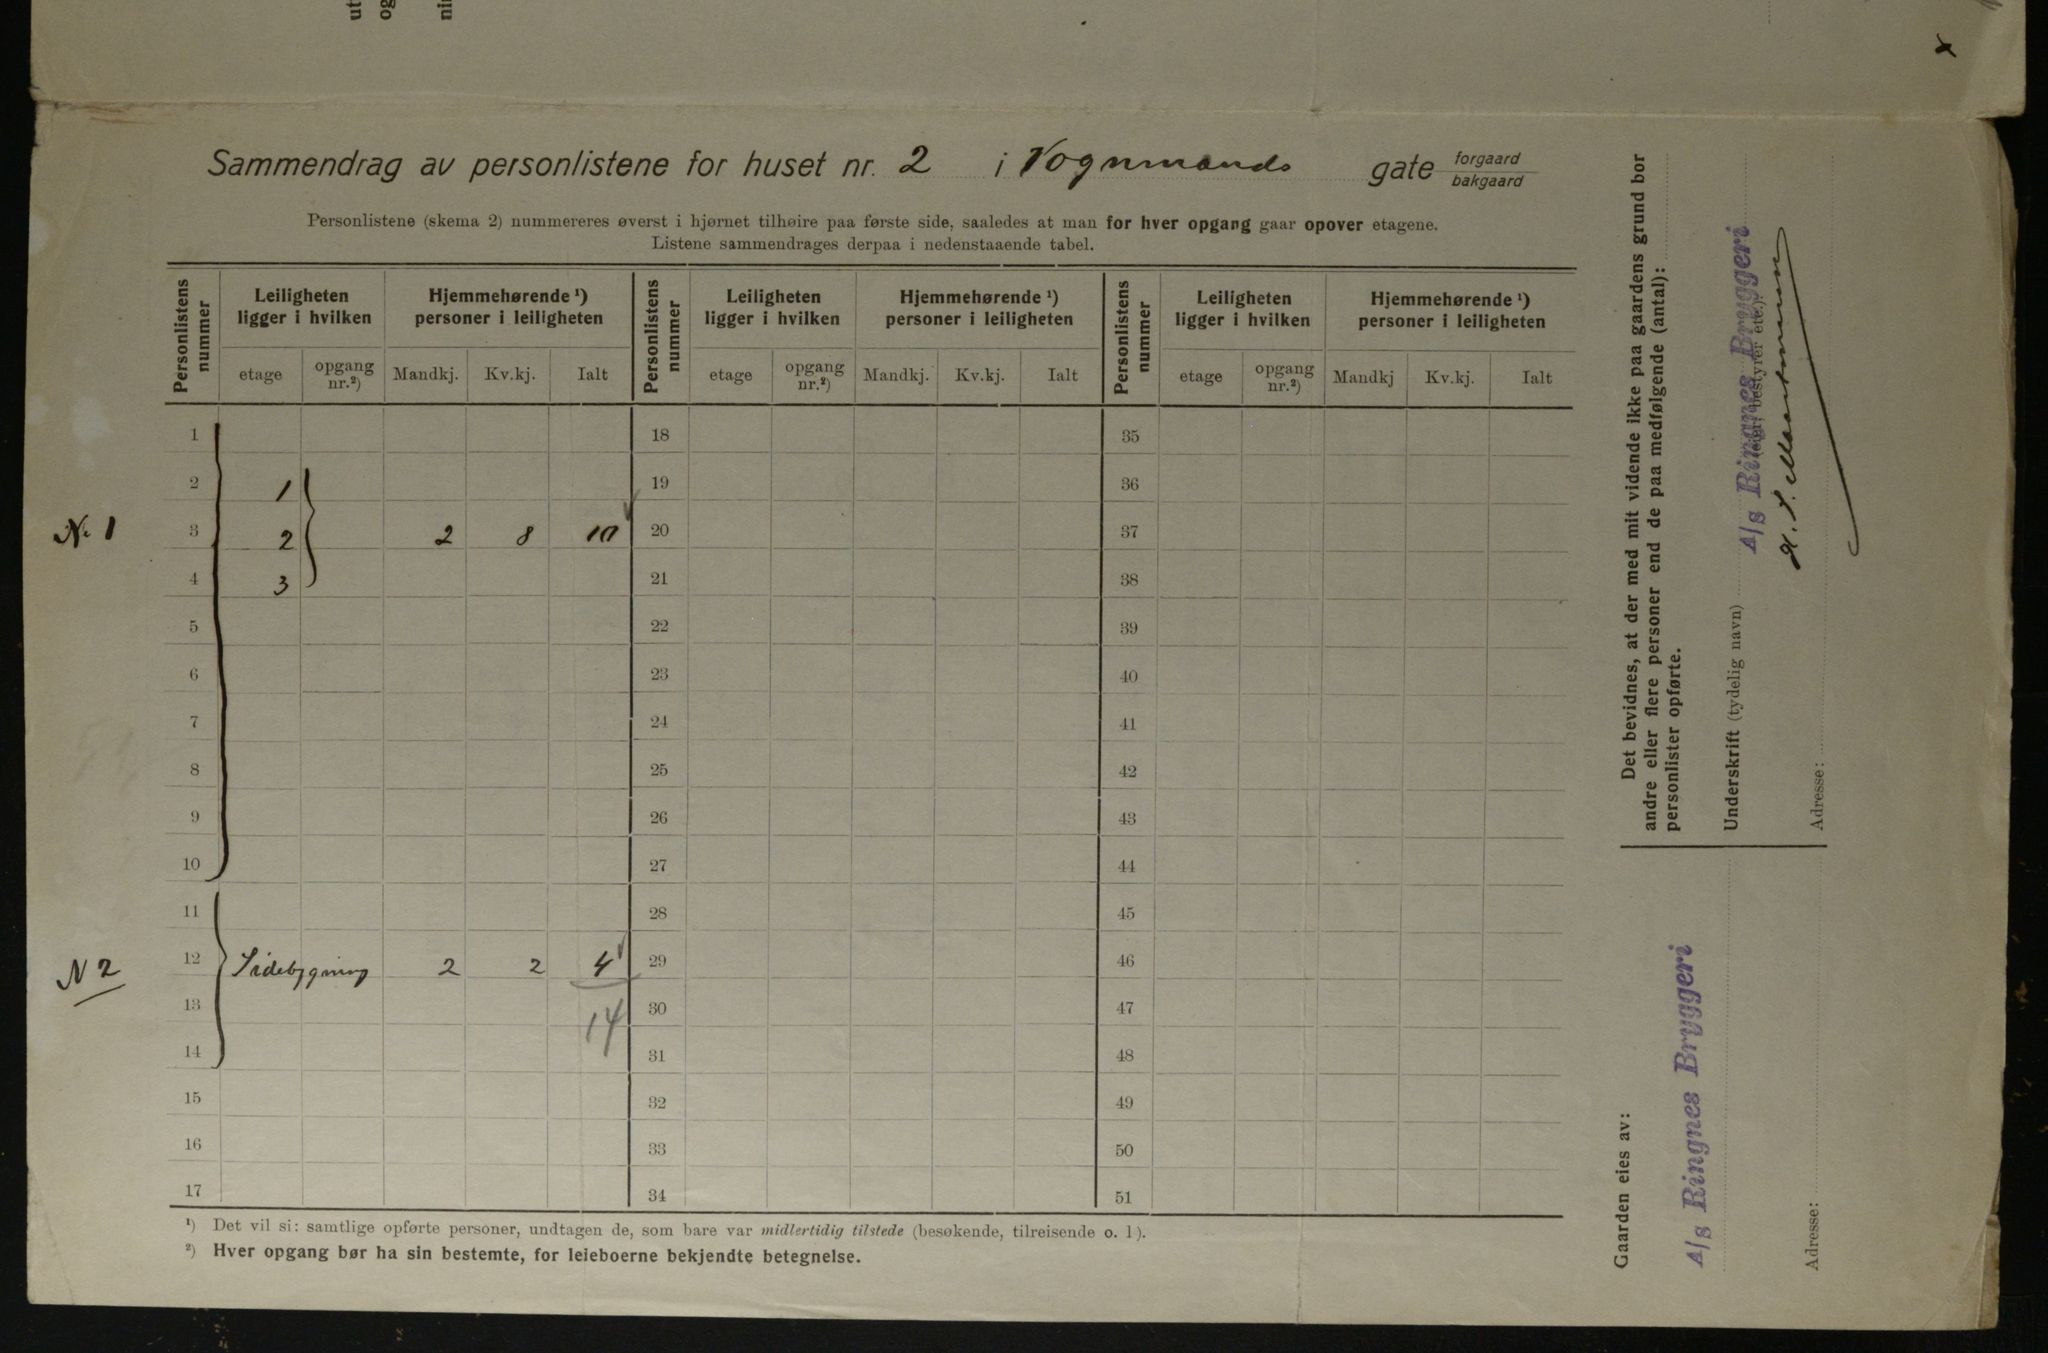 Sammendrag av personlistene for huset nr. 2 i Vognmands gate forgaard bakgaard
Personlistene (skema 2) nummereres øverst i hjørnet tilhøire paa første side, saaledes at man for hver opgang gaar opover etagene.
Listene sammendrages derpaa i nedenstaaende tabel.
Personlistens nummer
Leiligheten ligger i hvilken
Hjemmehørende ¹) personer i leiligheten
Personlistens nummer
Leiligheten ligger i hvilken
Hjemmehørende ¹) personer i leiligheten
Personlistens nummer
Leiligheten ligger i hvilken
Hjemmehørende ¹) personer i leiligheten
etage opgang nr.²) Mandkj. Kv.kj. Ialt etage opgang nr.²) Mandkj. Kv.kj. Ialt etage opgang nr.²) Mandkj Kv.kj. Ialt
1 18 35
2 1 19 36
N. 1 3 2 2 8 10 20 37
4 3 21 38
5 22 39
6 23 40
7 24 41
8 25 42
9 26 43
10 27 44
11 28 45
N 2 12 Sidebygning 2 2 4 29 46
13 14 30 47
14 31 48
15 32 49
16 33 50
17 34 51
¹) Det vil si: samtlige opførte personer, undtagen de, som bare var midlertidig tilstede (besøkende, tilreisende o. l).
²) Hver opgang bør ha sin bestemte, for leieboerne bekjendte betegnelse.
Det bevidnes, at der med mit vidende ikke paa gaardens grund bor
andre eller flere personer end de paa medfølgende (antal):
personlister opførte.
Underskrift (tydelig navn)
A/S Ringnes Bryggeri
(eier, bestyrer etc.)
Adresse:
Gaarden eies av:
A/S Ringnes Bryggeri
Adresse: